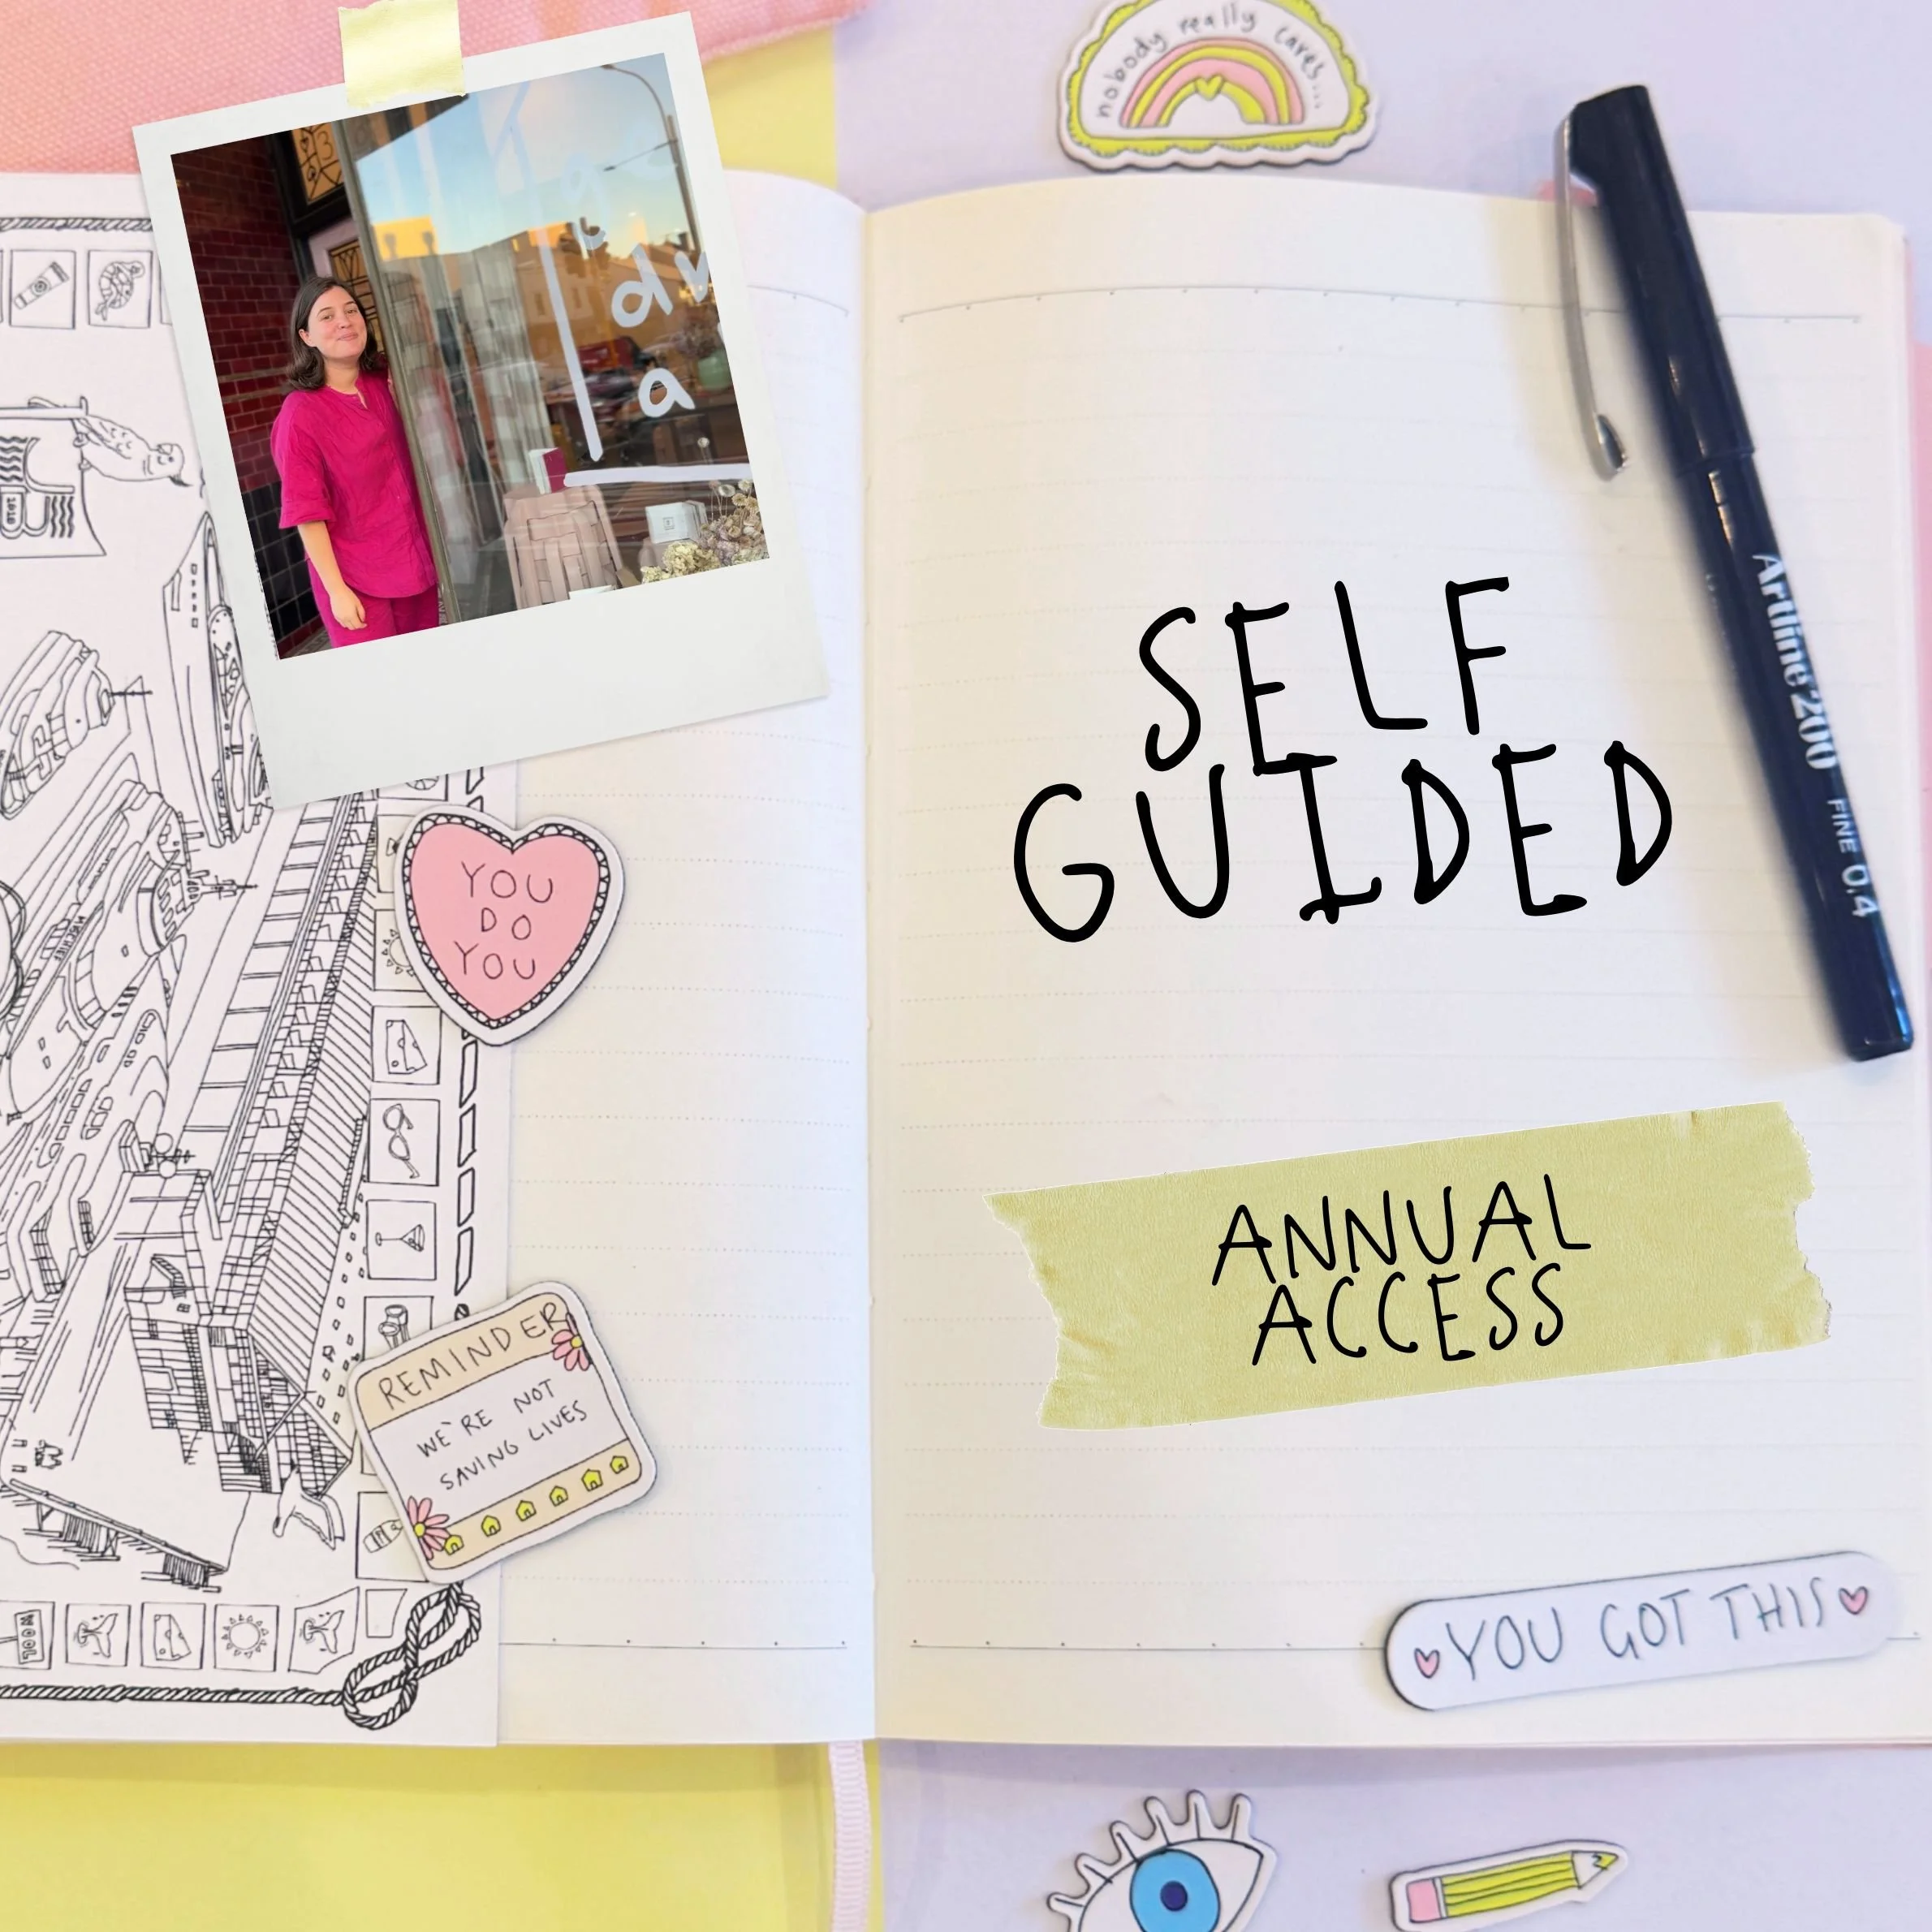 nobody really cares...
SELF
GUIDED
Artline 200 FINE 0.4
YOU
DO
YOU
ANNUAL
ACCESS
REMINDER
WE'RE NOT
SAVING LIVES
WOOL
YOU GOT THIS